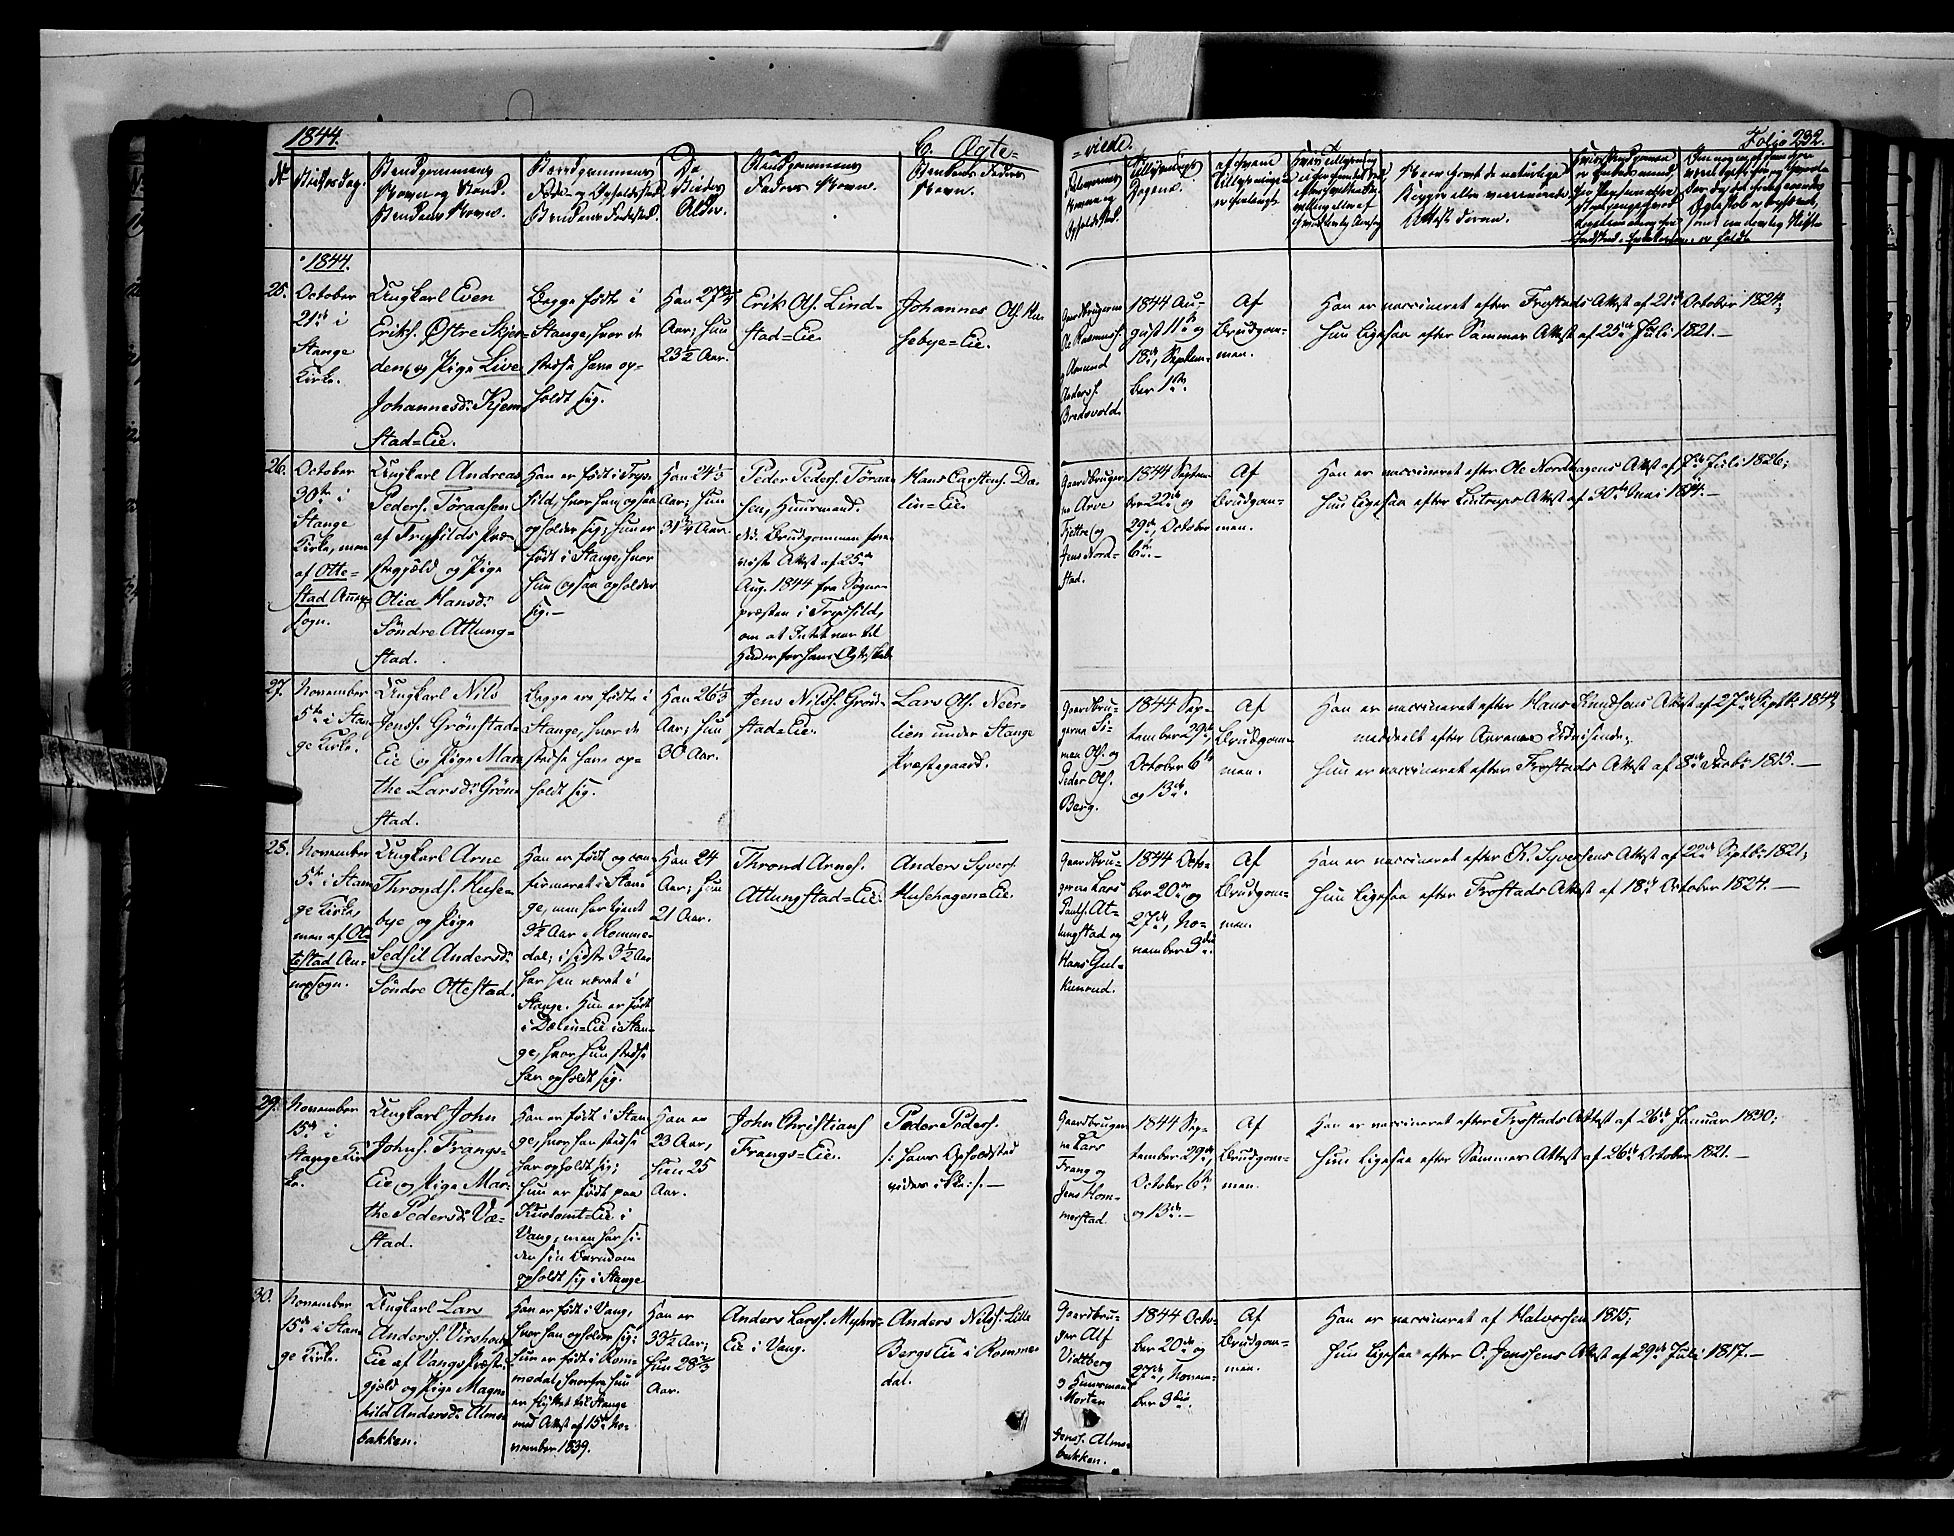 1844.
C. Ægte=
=viede.
Folio 232.
No
Vielsesdag.
Brudgommens
Navn og Stand.
Brudens Navn.
Brudgommens
Føde- og Opholdssted.
Brudens Fødested.
De
Viedes
Alder.
Brudgommens
Faders Navn.
Brudens Faders
Navn.
Forlovernes
Navne og
Opholdssted.
Tillysnings
Dagene.
af hvem
Tillysningen
er forlangt.
1844.
25.
October
21de i
Stange
Kirke.
Ungkarl Even
Eriks. Østre Skjer-
den og Pige Live
Johannesdr Kjem-
stad=Eie.
Begge fødte i
Stange, hvor de
stedse have op-
holdt sig.
Han 27 3/4
Aar; hun
23 1/2 Aar.
Erik Ols. Lind-
stad=Eie.
Johannes Ols. Hu-
sebye=Eie.
Gaardbrugerne
Ole Rasmuss.
og Amund
Anders.
Bredsvold.
1844 Au-
gust 11te og
18de, Septem-
ber 1ste
Af
Brudgom-
men.
Han er vaccineret efter Frostads Attest af 21de October 1824;
Hun ligesaa efter Sammes Attest af 25de Juli 1821. —
26.
October
30te i
Stange
Kirke, men
af Otte-
stad Annex-
sogn.
Ungkarl Andreas
Peders. Tøraasen
af Trysilds Præ-
stegjeld og Pige
Olia Hansdr
Søndre Attlung-
stad.
Han er født i Trys-
sild, hvor han ogsaa
opholder sig; hun er
født i Stange, hvor
hun ogsaa opholder
sig. —
Han 24 1/3
Aar; hun
31 3/4 Aar.
Peder Peders. Tøraa-
sen, Huusmand.
NB. Brudgommen frem-
viste Attest af 25de
Aug. 1844 fra Sogne-
præsten i Tryssild,
om at Intet var til
Hinder for hans Ægteskab.
Hans Carstens. Dæ-
lin=Eie.
Gaardbruger-
ne Arve
Hjettre og
Jens Nord-
stad.
1844 Septem-
ber 22de og
29de, October
6te —
Af
Brudgom-
men.
Han er vaccineret efter Ole Nordhagens Attest af 7de Juli 1826;
Hun ligesaa efter Lintrups Attest af 30te Mai 1814. —
27.
November
5te i Stan-
ge Kirke.
Ungkarl Nils
Jens. Grønstad-
Eie og Pige Mar-
the Larsdr Grøn-
stad.
Begge ere fødte i
Stange, hvor de
stedse have op-
holdt sig.
Han 26 1/3
Aar; hun
30 Aar.
Jens Nils. Grøn-
stad=Eie.
Lars Ols. Neer-
lien under Stange
Præstegaard.
Gaardbru-
gerne Si-
men Ols. og
Peder Ols.
Berg.
1844 Sep-
tember 29de,
October 6te
og 13de.
Af
Brudgom-
men.
Han er vaccineret efter Hans Knudsens Attest af 27de Septbr 1844,
meddeelt efter Arrenes Udvisende;
Hun er vaccineret efter Frostads Attest af 8de Decbr 1815. —
28.
November
5te i Stan-
ge Kirke,
men af Ot-
testad An-
nexsogn.
Ungkarl Arne
Thronds. Huse-
bye og Pige
Sedsil Andersdr
Søndre Ottestad.
Han er født og con-
firmeret i Stan-
ge, men har tjent
3 1/2 Aar i Romme-
dal; i sidste 3 1/2 Aar
har han været i
Stange. Hun er født
i Dælin=Eie i Stan-
ge, hvor hun stedse
har opholdt sig.
Han 24
Aar; hun
21 Aar.
Thrond Arnes.
Attlungstad=Eie.
Anders Syvers.
Husehagen=Eie.
Gaardbru-
gerne Lars
Pauls. At-
lungstad og
Hans Gul-
kunrud.
1844 Octo-
ber 20de og
27de, No-
vember 3die
Af
Brudgom-
men.
Han er vaccineret efter K. Syversens Attest af 22de Septbr 1821;
Hun ligesaa efter Frostads Attest af 18de October 1824. —
29.
November
15de i
Stange Kir-
ke.
Ungkarl John
Johns. Frangs-
Eie og Pige Mar-
the Pedersdr Væ-
stad.
Han er født i Stan-
ge, hvor han stedse
har opholdt sig;
hun er født paa
Kustomt=Eie i
Vang, men har si-
den sin Barndom
opholdt sig i Stange
Han er
23 Aar,
hun 25
Aar.
John Christians
Frangs=Eie.
Peder Peders.
/: hans Opholdsted
vides ikke :/. —
Gaardbruger-
ne Lars
Frang og
Jens Hom-
merstad.
1844 Sep-
tember 29de,
October 6te
og 13de. —
Af
Brudgom-
men.
Han er vaccineret efter Frostads Attest af 26de Januar 1830;
Hun ligesaa efter Sammes Attest af 26de October 1821. —
30.
November
15de i Stan-
ge Kirke.
Ungkarl Lars
Anders. Virshoug-
Eie af Vangs Præste-
gjeld og Pige Magn-
hild Andersdr Alme-
bakken.
Han er født i Vang,
hvor han opholder sig;
hun er født i Rom-
medal, hvorfra hun
er flyttet til Stange
med Attest af 15de No-
vember 1839.
Han er
33 1/2 Aar;
hun 28 2/3
Aar.
Anders Larss. Myhrs-
Eie i Vang.
Anders Nils. Lille
Bergs Eie i Romme-
dal.
Gaardbru-
ger Alf
Vidtberg
og Huusmand
Morten
Jens. Alme-
bakken.
1844 Octo-
ber 20de og
27de, Novem-
ber 3die.
Af
Brudgom-
men.
Han er vaccineret af Halvorsen 1815;
Hun ligesaa efter O. Jenssens Attest af 29de Juli 1817. —